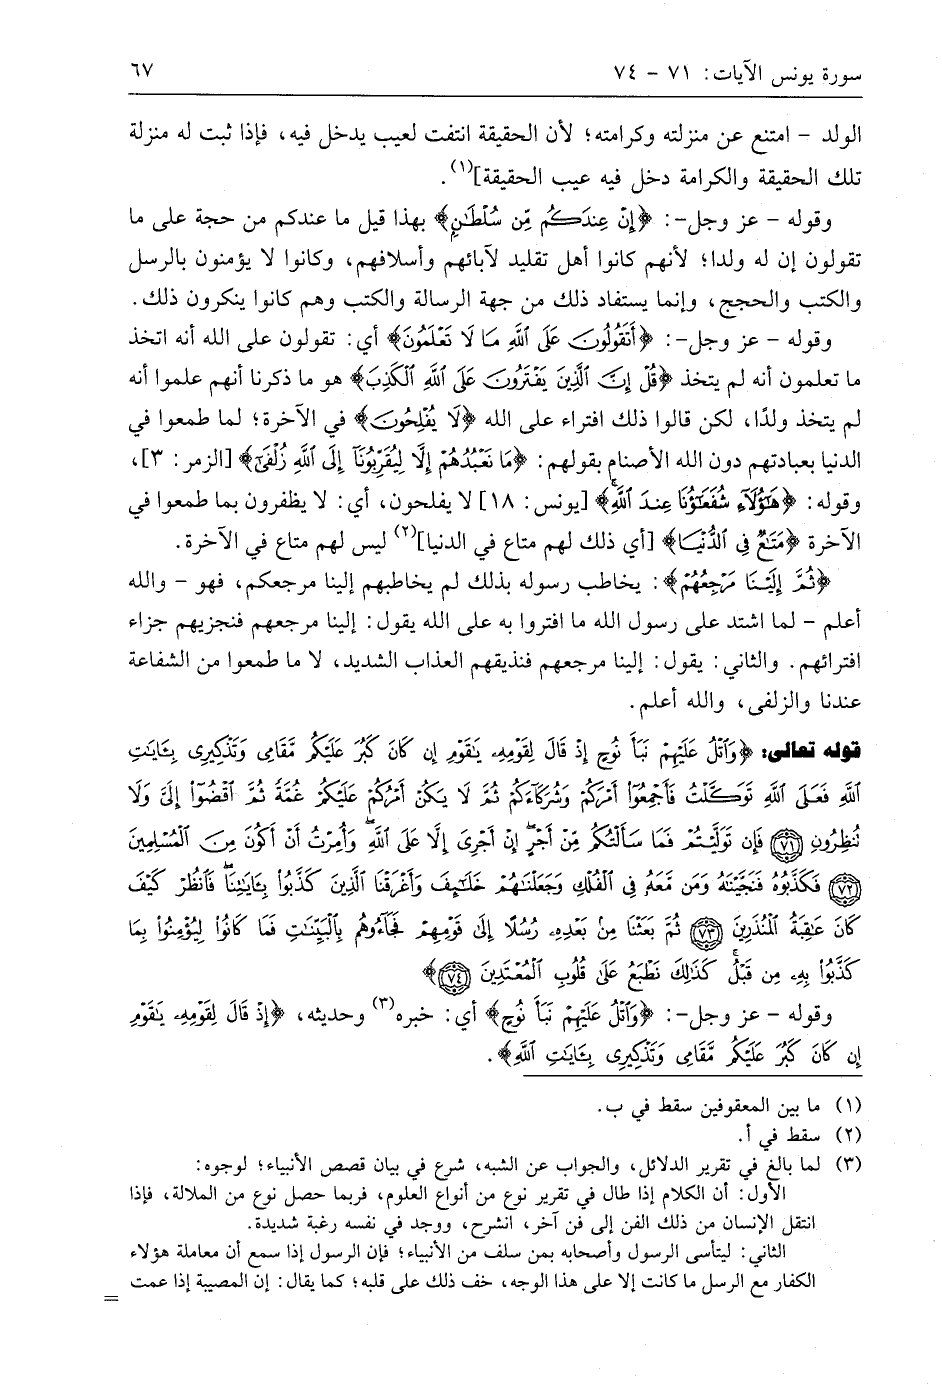 سورة يونس الآيات: ٧١ - ٧٤
٦٧
الولد - امتنع عن منزلته وكرامته؛ لأن الحقيقة انتفت لعيب يدخل فيه، فإذا ثبت له منزلة
تلك الحقيقة والكرامة دخل فيه عيب الحقيقة](١).
وقوله - عز وجل-: ﴿إِنْ عِندَكُم مِّن سُلْطَٰنٍ﴾ بهذا قيل ما عندكم من حجة على ما
تقولون إن له ولدا؛ لأنهم كانوا أهل تقليد لآبائهم وأسلافهم، وكانوا لا يؤمنون بالرسل
والكتب والحجج، وإنما يستفاد ذلك من جهة الرسالة والكتب وهم كانوا ينكرون ذلك.
وقوله - عز وجل-: ﴿أَتَقُولُونَ عَلَى ٱللَّهِ مَا لَا تَعْلَمُونَ﴾ أي: تقولون على الله أنه اتخذ
ما تعلمون أنه لم يتخذ ﴿قُلْ إِنَّ ٱلَّذِينَ يَفْتَرُونَ عَلَى ٱللَّهِ ٱلْكَذِبَ﴾ هو ما ذكرنا أنهم علموا أنه
لم يتخذ ولدًا، لكن قالوا ذلك افتراء على الله ﴿لَا يُفْلِحُونَ﴾ في الآخرة؛ لما طمعوا في
الدنيا بعبادتهم دون الله الأصنام بقولهم: ﴿مَا نَعْبُدُهُمْ إِلَّا لِيُقَرِّبُونَآ إِلَى ٱللَّهِ زُلْفَىٰٓ﴾ [الزمر: ٣]،
وقوله: ﴿هَٰٓؤُلَآءِ شُفَعَٰٓؤُنَا عِندَ ٱللَّهِۚ﴾ [يونس: ١٨] لا يفلحون، أي: لا يظفرون بما طمعوا في
الآخرة ﴿مَتَٰعٌ فِى ٱلدُّنْيَا﴾ [أي ذلك لهم متاع في الدنيا](٢) ليس لهم متاع في الآخرة.
﴿ثُمَّ إِلَيْنَا مَرْجِعُهُمْ﴾: يخاطب رسوله بذلك لم يخاطبهم إلينا مرجعكم، فهو - والله
أعلم - لما اشتد على رسول الله ما افتروا به على الله يقول: إلينا مرجعهم فنجزيهم جزاء
افترائهم. والثاني: يقول: إلينا مرجعهم فنذيقهم العذاب الشديد، لا ما طمعوا من الشفاعة
عندنا والزلفى، والله أعلم.
قوله تعالى: ﴿وَٱتْلُ عَلَيْهِمْ نَبَأَ نُوحٍ إِذْ قَالَ لِقَوْمِهِۦ يَٰقَوْمِ إِن كَانَ كَبُرَ عَلَيْكُم مَّقَامِى وَتَذْكِيرِى بِـَٔايَٰتِ
ٱللَّهِ فَعَلَى ٱللَّهِ تَوَكَّلْتُ فَأَجْمِعُوٓا۟ أَمْرَكُمْ وَشُرَكَآءَكُمْ ثُمَّ لَا يَكُنْ أَمْرُكُمْ عَلَيْكُمْ غُمَّةً ثُمَّ ٱقْضُوٓا۟ إِلَىَّ وَلَا
تُنظِرُونِ (٧١) فَإِن تَوَلَّيْتُمْ فَمَا سَأَلْتُكُم مِّنْ أَجْرٍۖ إِنْ أَجْرِىَ إِلَّا عَلَى ٱللَّهِۖ وَأُمِرْتُ أَنْ أَكُونَ مِنَ ٱلْمُسْلِمِينَ
(٧٢) فَكَذَّبُوهُ فَنَجَّيْنَٰهُ وَمَن مَّعَهُۥ فِى ٱلْفُلْكِ وَجَعَلْنَٰهُمْ خَلَٰٓئِفَ وَأَغْرَقْنَا ٱلَّذِينَ كَذَّبُوا۟ بِـَٔايَٰتِنَاۖ فَٱنظُرْ كَيْفَ
كَانَ عَٰقِبَةُ ٱلْمُنذَرِينَ (٧٣) ثُمَّ بَعَثْنَا مِنۢ بَعْدِهِۦ رُسُلًا إِلَىٰ قَوْمِهِمْ فَجَآءُوهُم بِٱلْبَيِّنَٰتِ فَمَا كَانُوا۟ لِيُؤْمِنُوا۟ بِمَا
كَذَّبُوا۟ بِهِۦ مِن قَبْلُۚ كَذَٰلِكَ نَطْبَعُ عَلَىٰ قُلُوبِ ٱلْمُعْتَدِينَ (٧٤)﴾
وقوله - عز وجل-: ﴿وَٱتْلُ عَلَيْهِمْ نَبَأَ نُوحٍ﴾ أي: خبره(٣) وحديثه، ﴿إِذْ قَالَ لِقَوْمِهِۦ يَٰقَوْمِ
إِن كَانَ كَبُرَ عَلَيْكُم مَّقَامِى وَتَذْكِيرِى بِـَٔايَٰتِ ٱللَّهِ﴾.
(١) ما بين المعقوفين سقط في ب.
(٢) سقط في أ.
(٣) لما بالغ في تقرير الدلائل، والجواب عن الشبه، شرع في بيان قصص الأنبياء؛ لوجوه:
الأول: أن الكلام إذا طال في تقرير نوع من أنواع العلوم، فربما حصل نوع من الملالة، فإذا
انتقل الإنسان من ذلك الفن إلى فن آخر، انشرح، ووجد في نفسه رغبة شديدة.
الثاني: ليتأسى الرسول وأصحابه بمن سلف من الأنبياء؛ فإن الرسول إذا سمع أن معاملة هؤلاء
الكفار مع الرسل ما كانت إلا على هذا الوجه، خف ذلك على قلبه؛ كما يقال: إن المصيبة إذا عمت
=